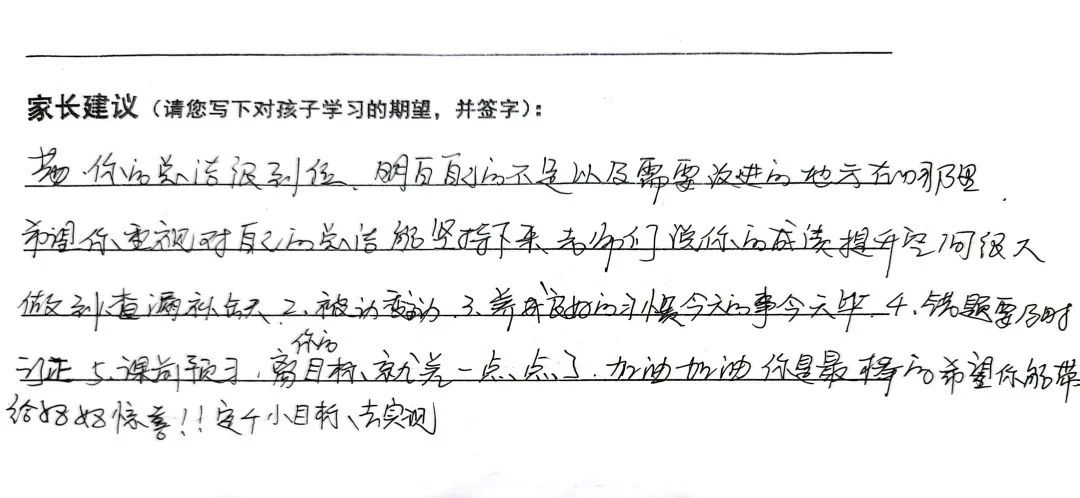 家长建议（请您写下对孩子学习的期望，并签字）：
你的总结很到位、明白自己的不足以及需要改进的地方在哪里.
希望你重视对自己的总结能坚持下来、老师们说你的成绩提升空间很大
做到、查漏补缺 2、被动变主动. 3、养成良好的习惯今天的事今天毕. 4、错题要及时
订正 5、课前预习. 离你的目标、就差一点、点了. 加油加油 你是最棒的希望你能带
给妈妈惊喜！！定个小目标、去实现